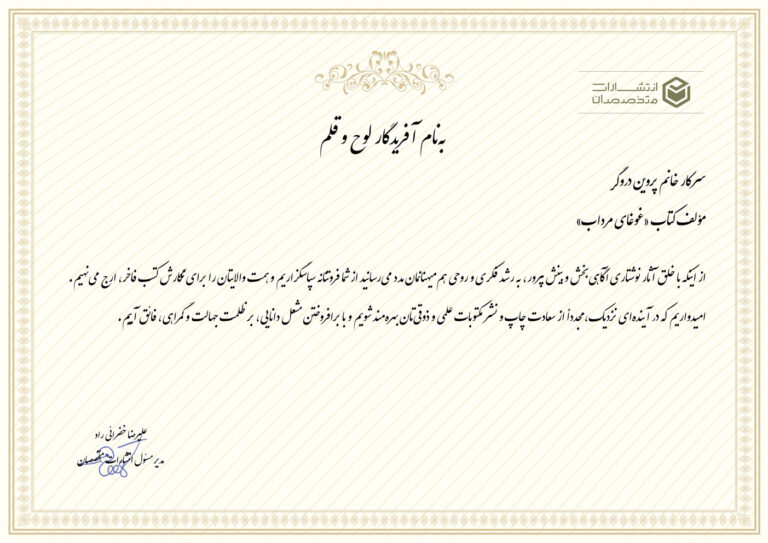 انتشارات
متخصصان
به‌نام آفریدگار لوح و قلم
سرکار خانم پروین دروگر
مؤلف کتاب «غوغای مرداب»
از اینکه با خلق آثار نوشتاری آگاهی‌بخش و بینش‌پرور، به رشد فکری و روحی هم‌میهنانمان مدد می‌رسانید از شما فروتنانه سپاسگزاریم و همت والایتان را برای نگارش کتب فاخر، ارج می‌نهیم.
امیدواریم که در آینده‌ای نزدیک، مجدداً از سعادت چاپ و نشر مکتوبات علمی و ذوقی‌تان بهره‌مند شویم و با برافروختن مشعل دانایی، بر ظلمت جهالت و گمراهی، فائق آییم.
علیرضا خفرائی راد
مدیر مسئول انتشارات متخصصان